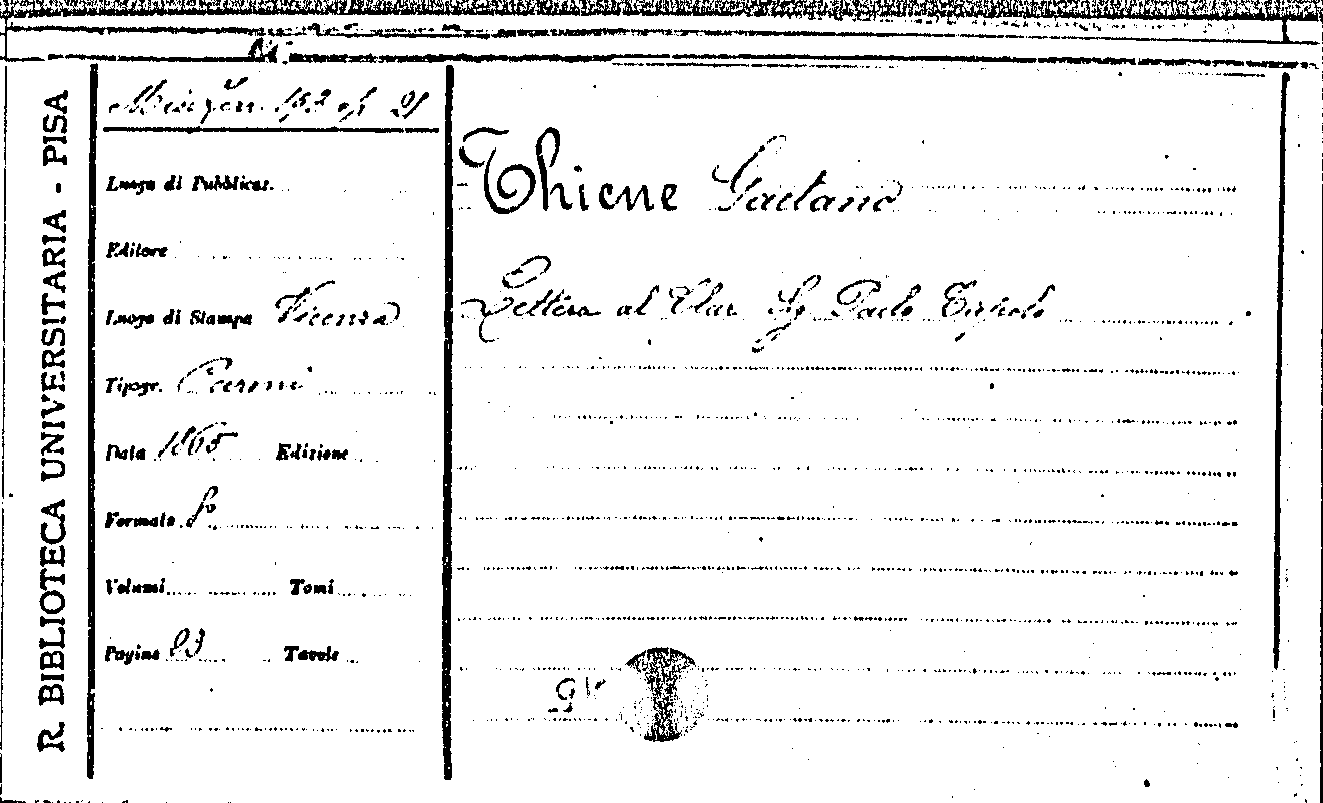 R. BIBLIOTECA UNIVERSITARIA - PISA
Miscellan. 193 op 21
Luogo di Pubblicaz.
Editore
Luogo di Stampa Vicenza
Tipogr. Paroni
Data 1865 Edizione
Formato 8°
Volumi Tomi
Pagine 23 Tavole
Thiene Gaetano
Lettera al Clar. Sg Paolo